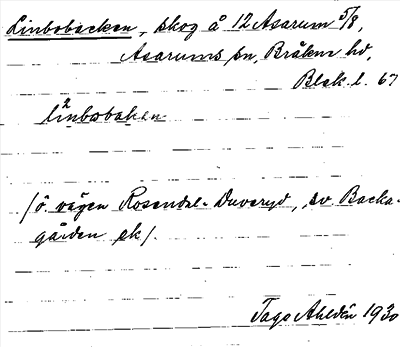 Linbobacken, skog å 12 Asarum 5/8,
Asarums sn, Bräkne hd,
Blek. l. 67
li²nbobaken
/ö. vägen Rosendal-Duveryd, sv Backa-
gården ek/.
Tage Ahldén 1930